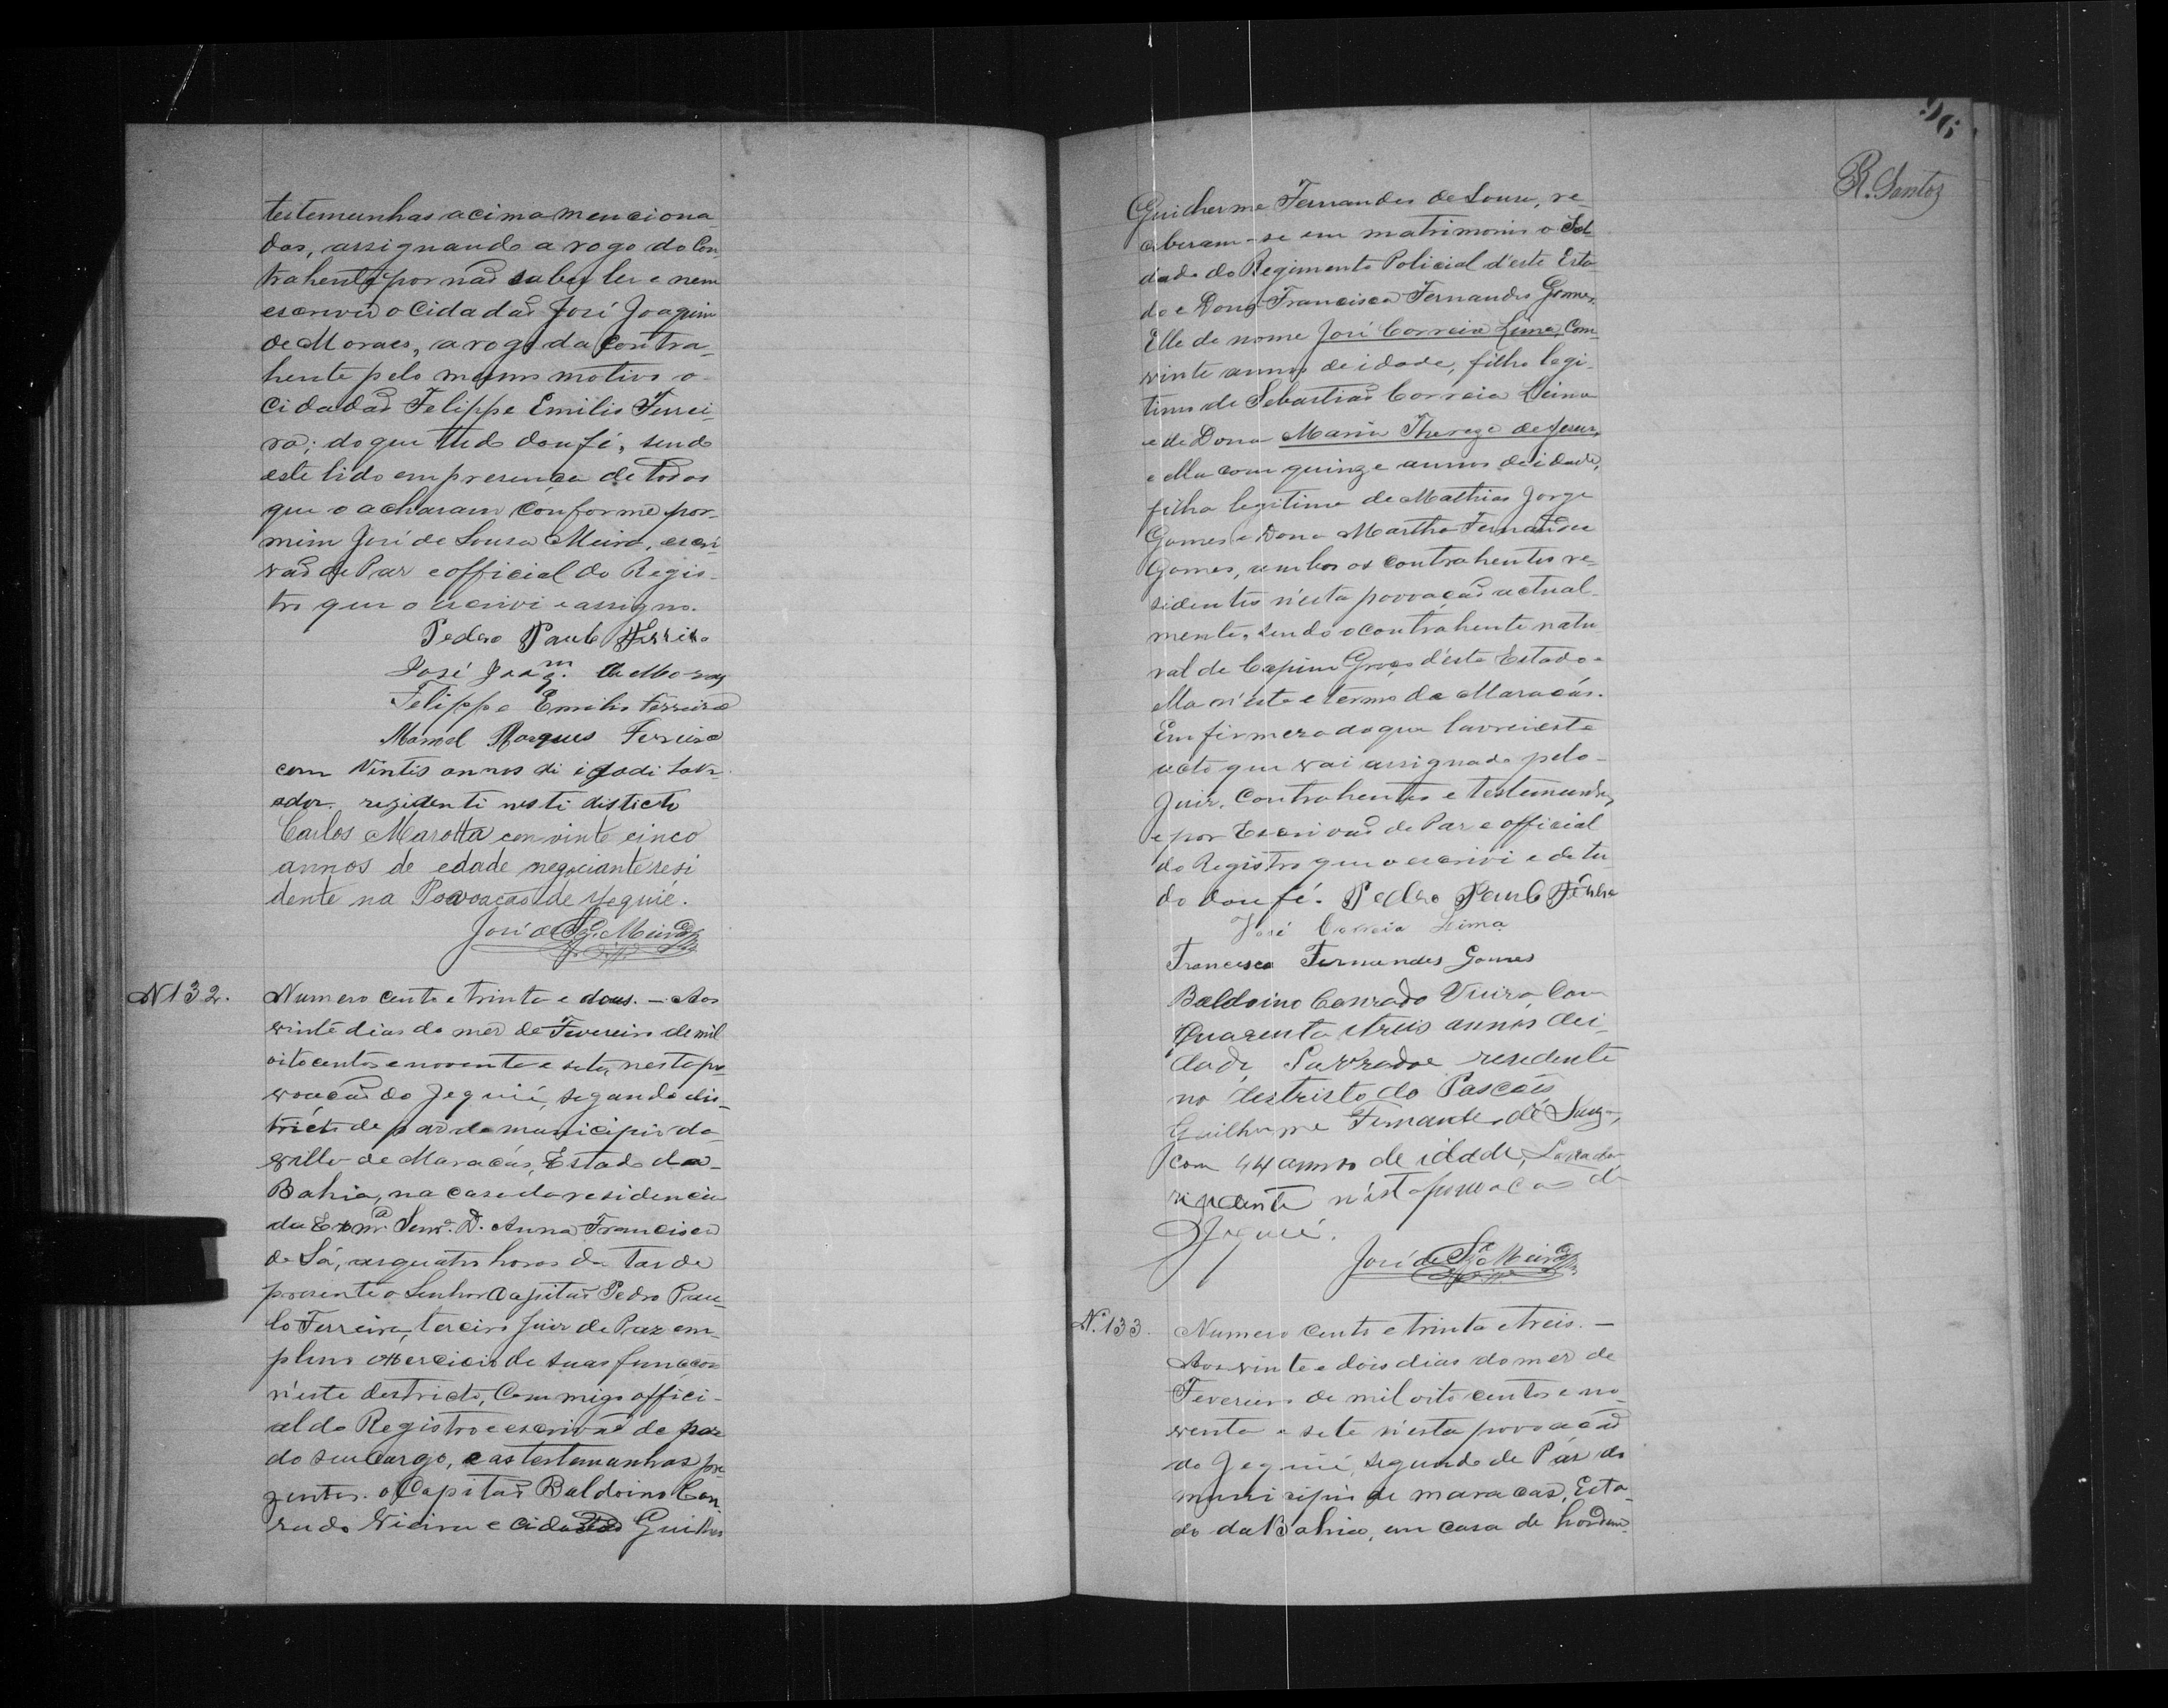 testemunhas acima menciona-
das, assignando a rogo do Con-
trahente por não saber ler e nem
escrever o Cidadão José Joaquim
de Moraes, a rogo da contra-
hente pelo mesmo motivo o
Cidadão Felippe Emilio Ferrei-
ra; do que tudo dou fé, sendo
este lido em presença de todos
que o acharam conforme por
mim José de Sousa Meira, escri-
vão de Paz e official do Regis-
tro que o escrevi e assigno.
Pedro Paulo Ferreira
José Joaqm. de Moraes
Felippe Emilio Ferreira
Manoel Marques Ferreira
com Vintis annos di idadi lavr
ador rezidenti nesti disticto
Carlos Marotta con vinte cinco
annos de edade negociante resi
dente na Povoação de Jequié.
José de Sza. Meira
N 132.
Numero cento e trinta e dous. — Aos
vinte dias do mez de Fevereiro de mil
oito centos e noventa e sete, nesta po-
voação do Jequié, segundo dis-
tricto de paz do municipio da
villa de Maracás, Estado da
Bahia, na casa da residencia
da Exmª. Senrª. D. Anna Francisca
de Sá, as quatro horas da tarde
presente o Senhor Capitão Pedro Pau-
lo Ferreira, terceiro Juiz de Paz em
pleno exercicio de suas funcções
n'este destricto, Commigo offici-
al do Registro e escrivão de paz
do seu cargo, e as testemunhas pre
zentes o Capitão Baldoino Con-
rado Vieira e cidadão Guilher
96
R. Santos
Guilherme Fernandes de Sousa, re-
ceberam-se em matrimonio o Sol
dado do Regimento Policial d'este Esta
do e Dona Francisca Fernandes Gomes.
Elle de nome José Correia Lima, Com
vinte annos de idade, filho legi-
timo de Sebastião Correia Lima
e de Dona Maria Thereza de Jesus,
e ella com quinze annos de idade,
filha legitima de Mathias Jorge
Gomes e Dona Martha Fernandes
Gomes, ambos os contrahentes re-
sidentes n'esta povoação actual-
mente, sendo o contrahente natu
ral de Capim Grosso d'este Estado e
ella n'este e termo de Maracás.
Em firmeza do que lavrei este
acto que vai assignado pelo
Juiz, Contrahentes e testemunhas
e por Escrivão de Paz e official
do Registro que o escrivi e de tu
do dou fé. Pedro Paulo Ferreira
José Correia Lima
Francisca Fernandes Gomes
Baldoino Conrado Vieira, Com
Quarenta e treis annos dei
dade, Lavrador resedente
no destricto do Pascáes
Guilherme Fernandes de Suza,
com 44 annos de idade, Lavrador
rezidente n'esta povoacão di
Jequié.
José de Sza. Meira
N. 133.
Numero cento e trinta e treis. —
Aos vinte e dois dias do mez de
Fevereiro de mil oito centos e no
venta e sete n'esta povoação
do Jequié, segundo de Páz do
municipio de maracás, Esta-
do da Bahia, em casa de